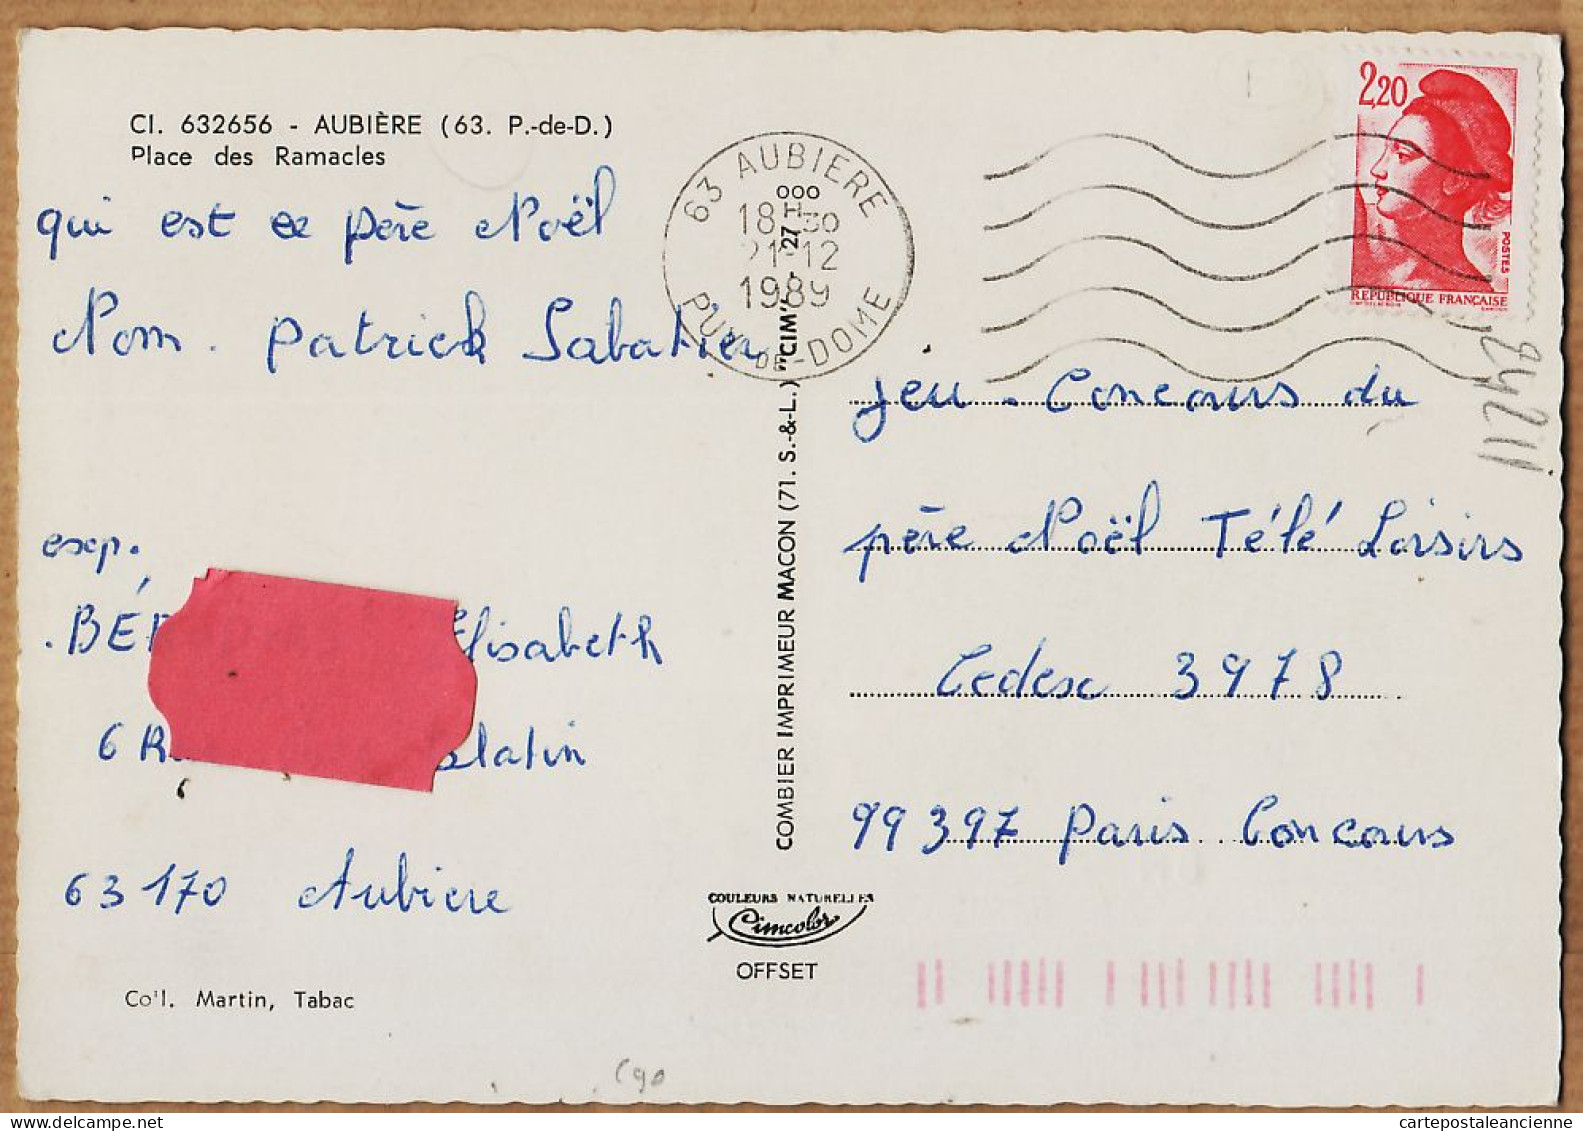 CI. 632656 - AUBIÈRE (63. P.-de-D.)
Place des Ramacles
qui est ce père Noël
Nom. Patrick Sabatier
exp.
BÉ Elisabeth
6 R
63170 Aubiere
Co'l. Martin, Tabac
63 AUBIERE
000
18H30
21-12
1989
PUY-DE-DOME
COMBIER IMPRIMEUR MACON (71. S.-&-L.) "CIM" - 27
COULEURS NATURELLES
Cimcolor
OFFSET
2,20
POSTES
REPUBLIQUE FRANÇAISE
jeu. Concours du
père Noël Télé Loisirs
Cedex 3978
99397 Paris Concours
C90
cartepostaleancienne.com